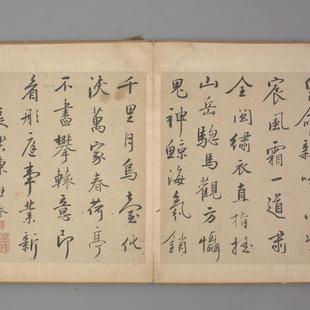 命新
宸風霜一道肅
全閩繡衣直指搖
山岳驄馬觀方懾
鬼神鯨海氣銷
千里月烏臺化
浹萬家春荷亭
不盡攀轅意即
看彤庭事業新